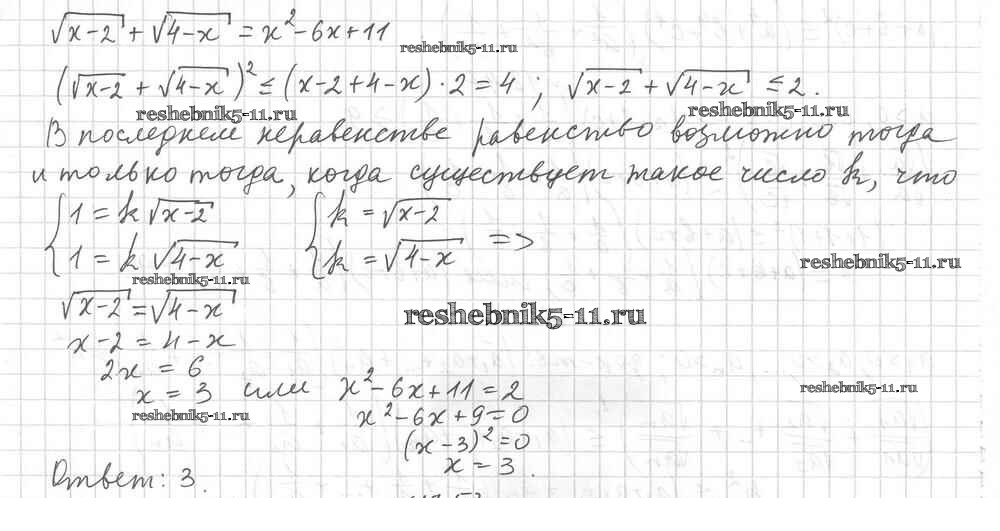 √(x-2) + √(4-x) = x² - 6x + 11
reshebnik5-11.ru
(√(x-2) + √(4-x))² ≤ (x-2+4-x)·2 = 4; √(x-2) + √(4-x) ≤ 2.
reshebnik5-11.ru reshebnik5-11.ru
В последнем неравенстве равенство возможно тогда
и только тогда, когда существует такое число k, что
{1 = k√(x-2) {k = √(x-2)
{1 = k√(4-x) {k = √(4-x) =>
reshebnik5-11.ru
reshebnik5-11.ru
√(x-2) = √(4-x)
reshebnik5-11.ru
x-2 = 4-x
2x = 6
x = 3 или x² - 6x + 11 = 2
reshebnik5-11.ru
reshebnik5-11.ru
x² - 6x + 9 = 0
(x-3)² = 0
x = 3.
Ответ: 3.